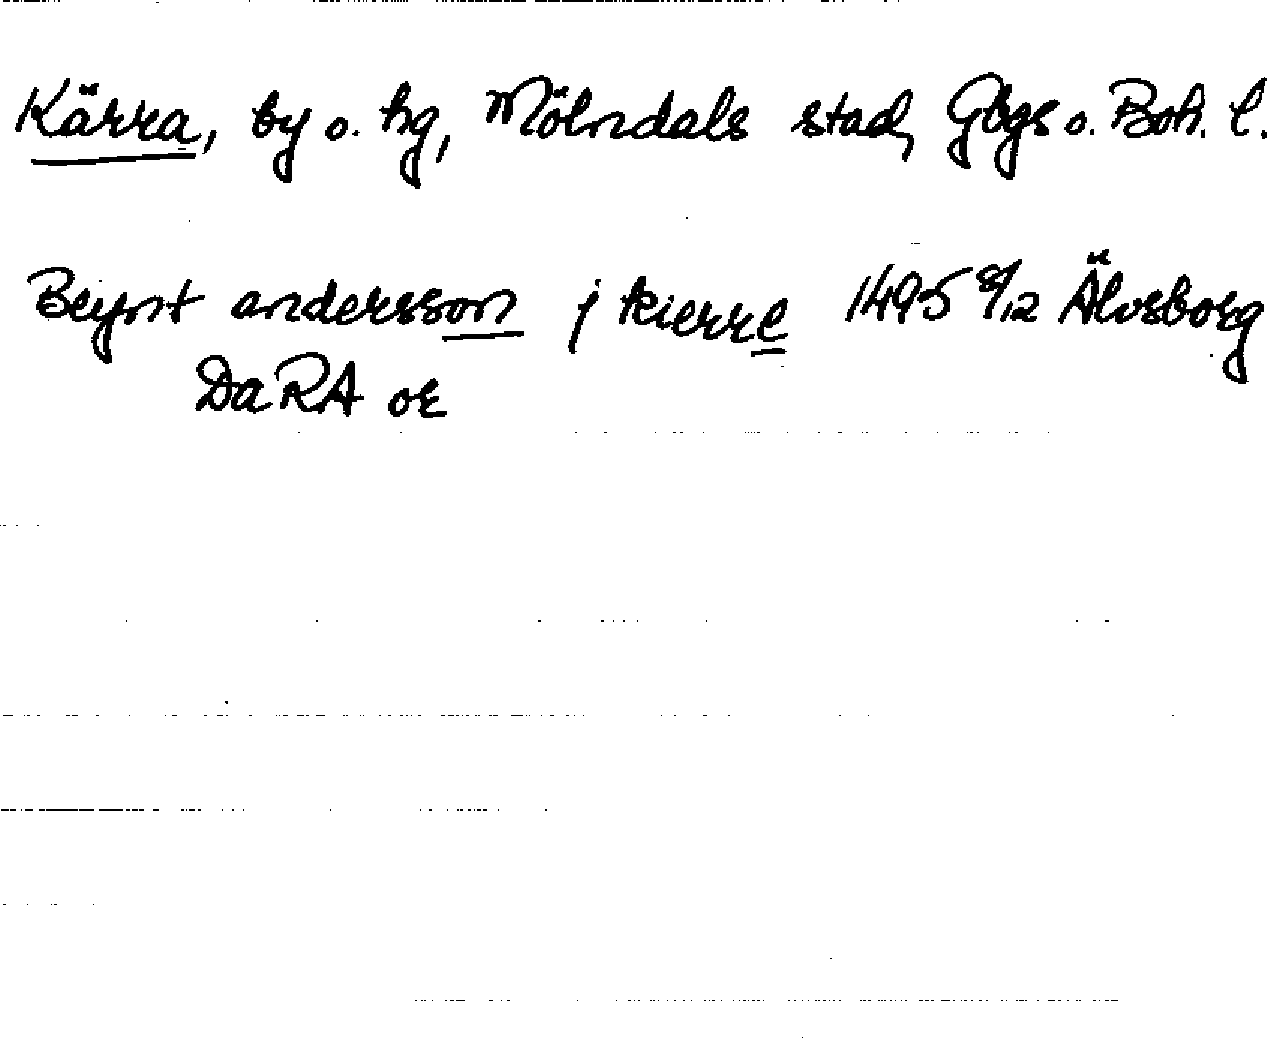 Kärra, by o. hg, Mölndals stad, Gbgs o. Boh. l.
Beynt andersson j kierre 1495 8/12 Älvsborg
DaRA or